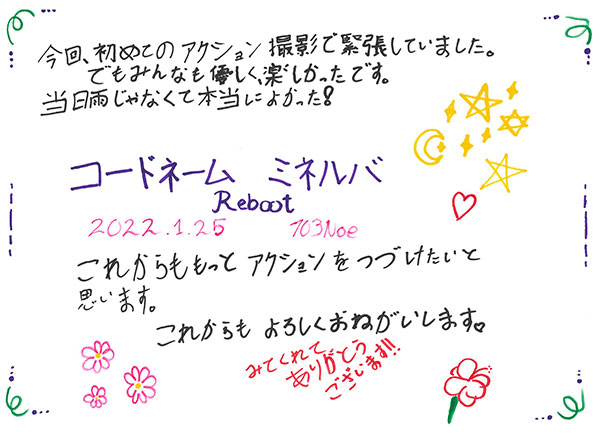 今回、初めてのアクション撮影で緊張していました。
でもみんなも優しく、楽しかったです。
当日雨じゃなくて本当によかった！
コードネーム ミネルバ
Reboot
2022.1.25 703Noe
これからももっとアクションをつづけたいと
思います。
これからもよろしくおねがいします。
みてくれて
ありがとう
ございます!!